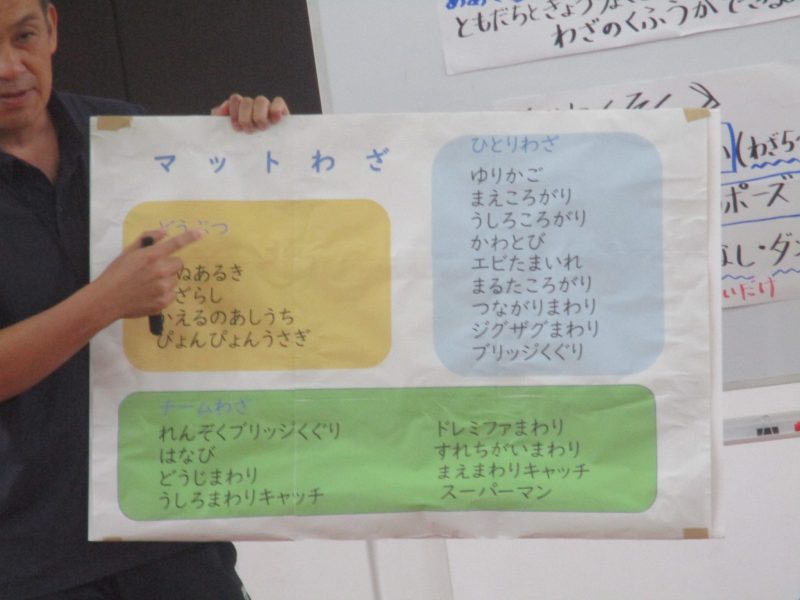 ともだちときょうな
わざのくふうができる
マットわざ
どうぶつ
ぬあるき
ざらし
かえるのあしうち
ぴょんぴょんうさぎ
ひとりわざ
ゆりかご
まえころがり
うしろころがり
かわとび
エビたまいれ
まるたころがり
つながりまわり
ジグザグまわり
ブリッジくぐり
チームわざ
れんぞくブリッジくぐり
はなび
どうじまわり
うしろまわりキャッチ
ドレミファまわり
すれちがいまわり
まえまわりキャッチ
スーパーマン
(わざら
ポーズ
なし・ダメ
いだけ